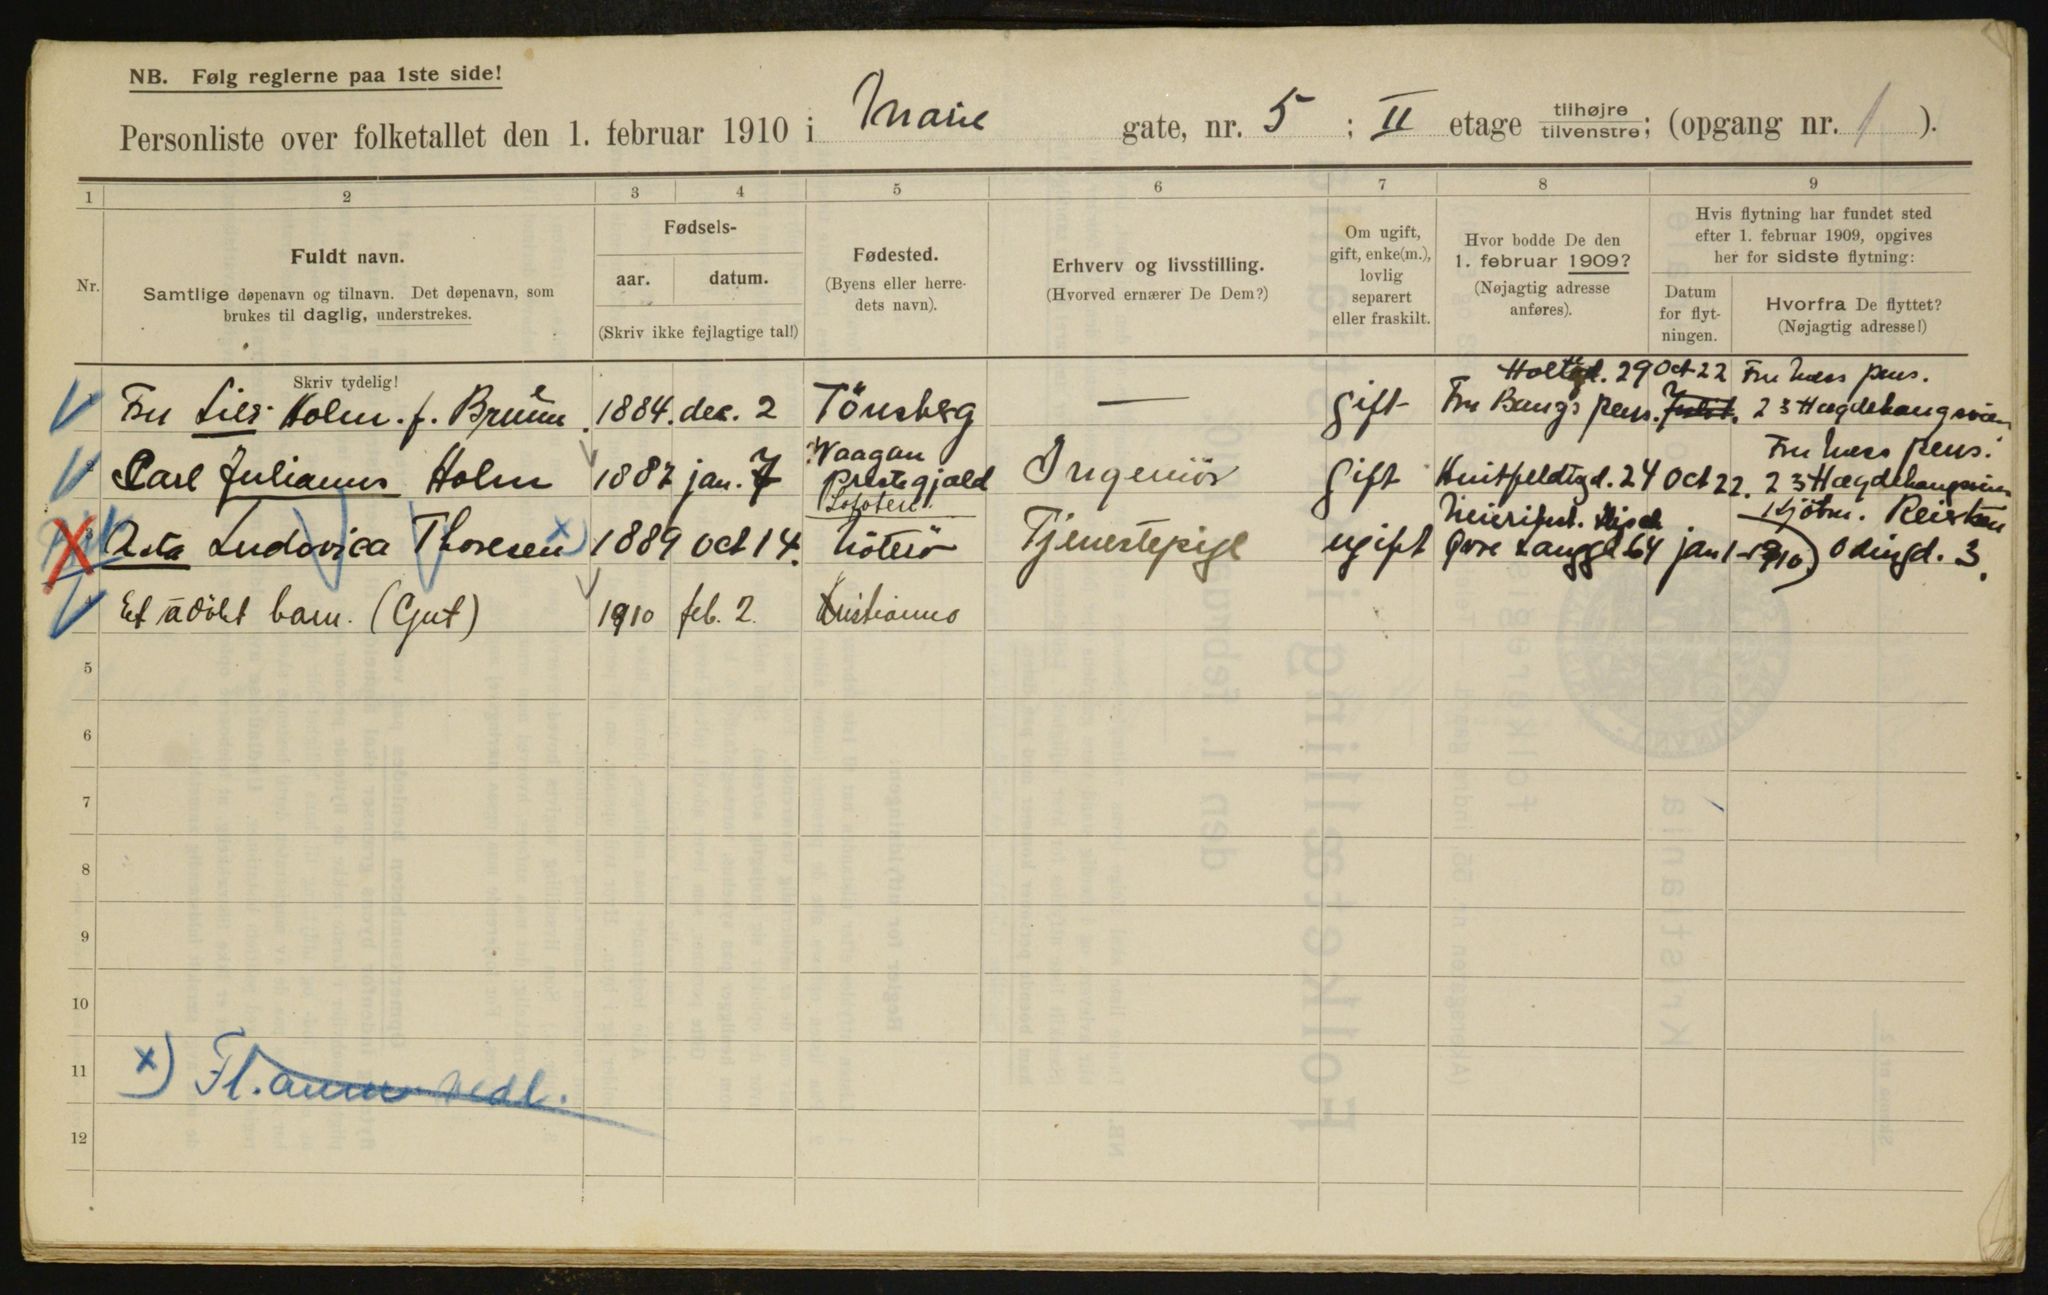 NB. Følg reglerne paa 1ste side!
Personliste over folketallet den 1. februar 1910 i Marie gate, nr. 5 ; II etage tilhøjre tilvenstre; (opgang nr. 1 ).
1 2 3 4 5 6 7 8 9
Nr.
Fuldt navn.
Samtlige døpenavn og tilnavn. Det døpenavn, som
brukes til daglig, understrekes.
Skriv tydelig!
Fødsels-
aar. datum.
(Skriv ikke fejlagtige tal!)
Fødested.
(Byens eller herre-
dets navn).
Erhverv og livsstilling.
(Hvorved ernærer De Dem?)
Om ugift,
gift, enke(m.),
lovlig
separert
eller fraskilt.
Hvor bodde De den
1. februar 1909?
(Nøjagtig adresse
anføres).
Hvis flytning har fundet sted
efter 1. februar 1909, opgives
her for sidste flytning:
Datum
for flyt-
ningen.
Hvorfra De flyttet?
(Nøjagtig adresse!)
Holtegd. 29 Oct 22 Fru Næss pens.
Fru Lies Holm. f. Bruun. 1884. dec. 2 Tönsberg — gift Fru Bangs pens. 23 Hægdehaugsveien
Vaagan Fru Næss pens.
Carl Julianus Holm 1887 jan. 7 Prestegjæld Ingeniör gift Huitfeldtsgd. 24 Oct 22. 23 Hægdehaugsveien
Lofoten
Asta Ludovica Thoresen x) 1889 oct 14. Nöterö Tjenestepige ugift Øvre Langgd 64 jan 1-1910) Odingd. 3.
Et udöbt barn. (Gut) 1910 feb. 2. Kristiania
5
6
7
8
9
10
11
12
x) Fl. anm. nedl.